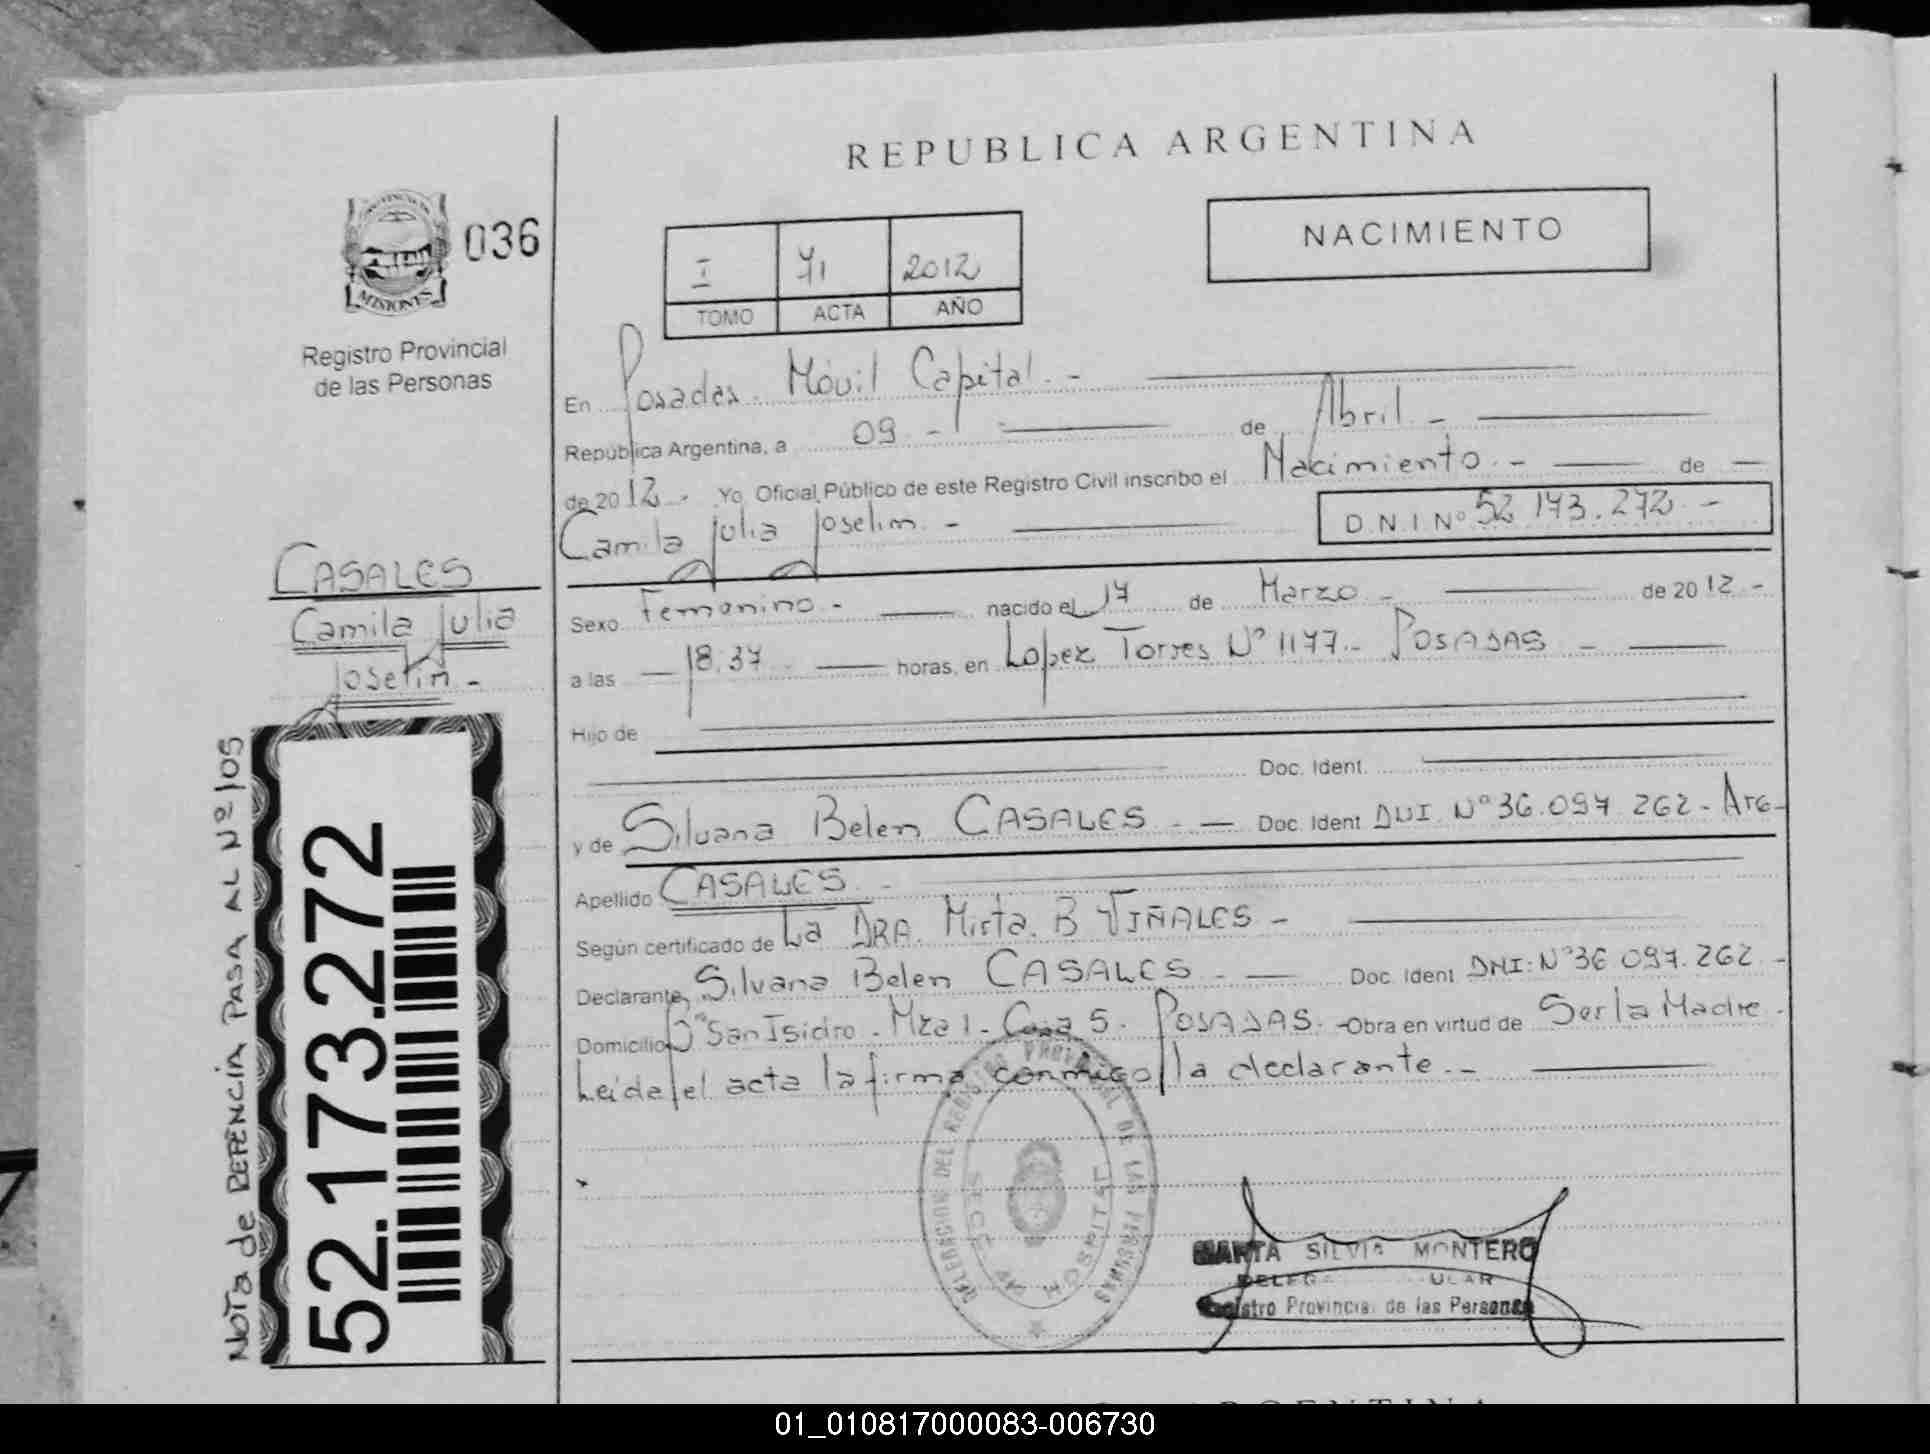 REPUBLICA ARGENTINA
NACIMIENTO
MISIONES
036
Registro Provincial
de las Personas
I 71 2012
TOMO ACTA AÑO
En Posadas. Móvil Capital.-
República Argentina, a 09.- de Abril.-
de 2012.- Yo, Oficial Público de este Registro Civil inscribo el Nacimiento.- de
Camila Julia Joselin.- D.N.I. Nº 52.173.272.-
CASALES
Camila Julia
Joselin.-
Sexo Femenino.- nacido el 17 de Marzo.- de 2012.-
a las 18:37 horas, en Lopez Torres Nº 1177.- POSADAS.-
Hijo de
Doc. Ident.
y de Silvana Belen CASALES.- Doc. Ident DNI Nº 36.097.262.- Arg-
Apellido CASALES.-
Según certificado de La DRA. Mirta. B VIÑALES-
Declarante Silvana Belen CASALES.- Doc. Ident DNI: Nº 36.097.262.-
Domicilio Bº San Isidro. Mza 1- Casa 5. POSADAS.- Obra en virtud de Ser la Madre.
Leida el acta la firma conmigo la declarante.-
NOTA de REFERENCIA PASA AL Nº 105
52.173.272
DELEGACION DEL REGISTRO PROVINCIAL DE LAS PERSONAS
SECC HOSPITAL
MARTA SILVIA MONTERO
Registro Provincial de las Personas
01_010817000083-006730